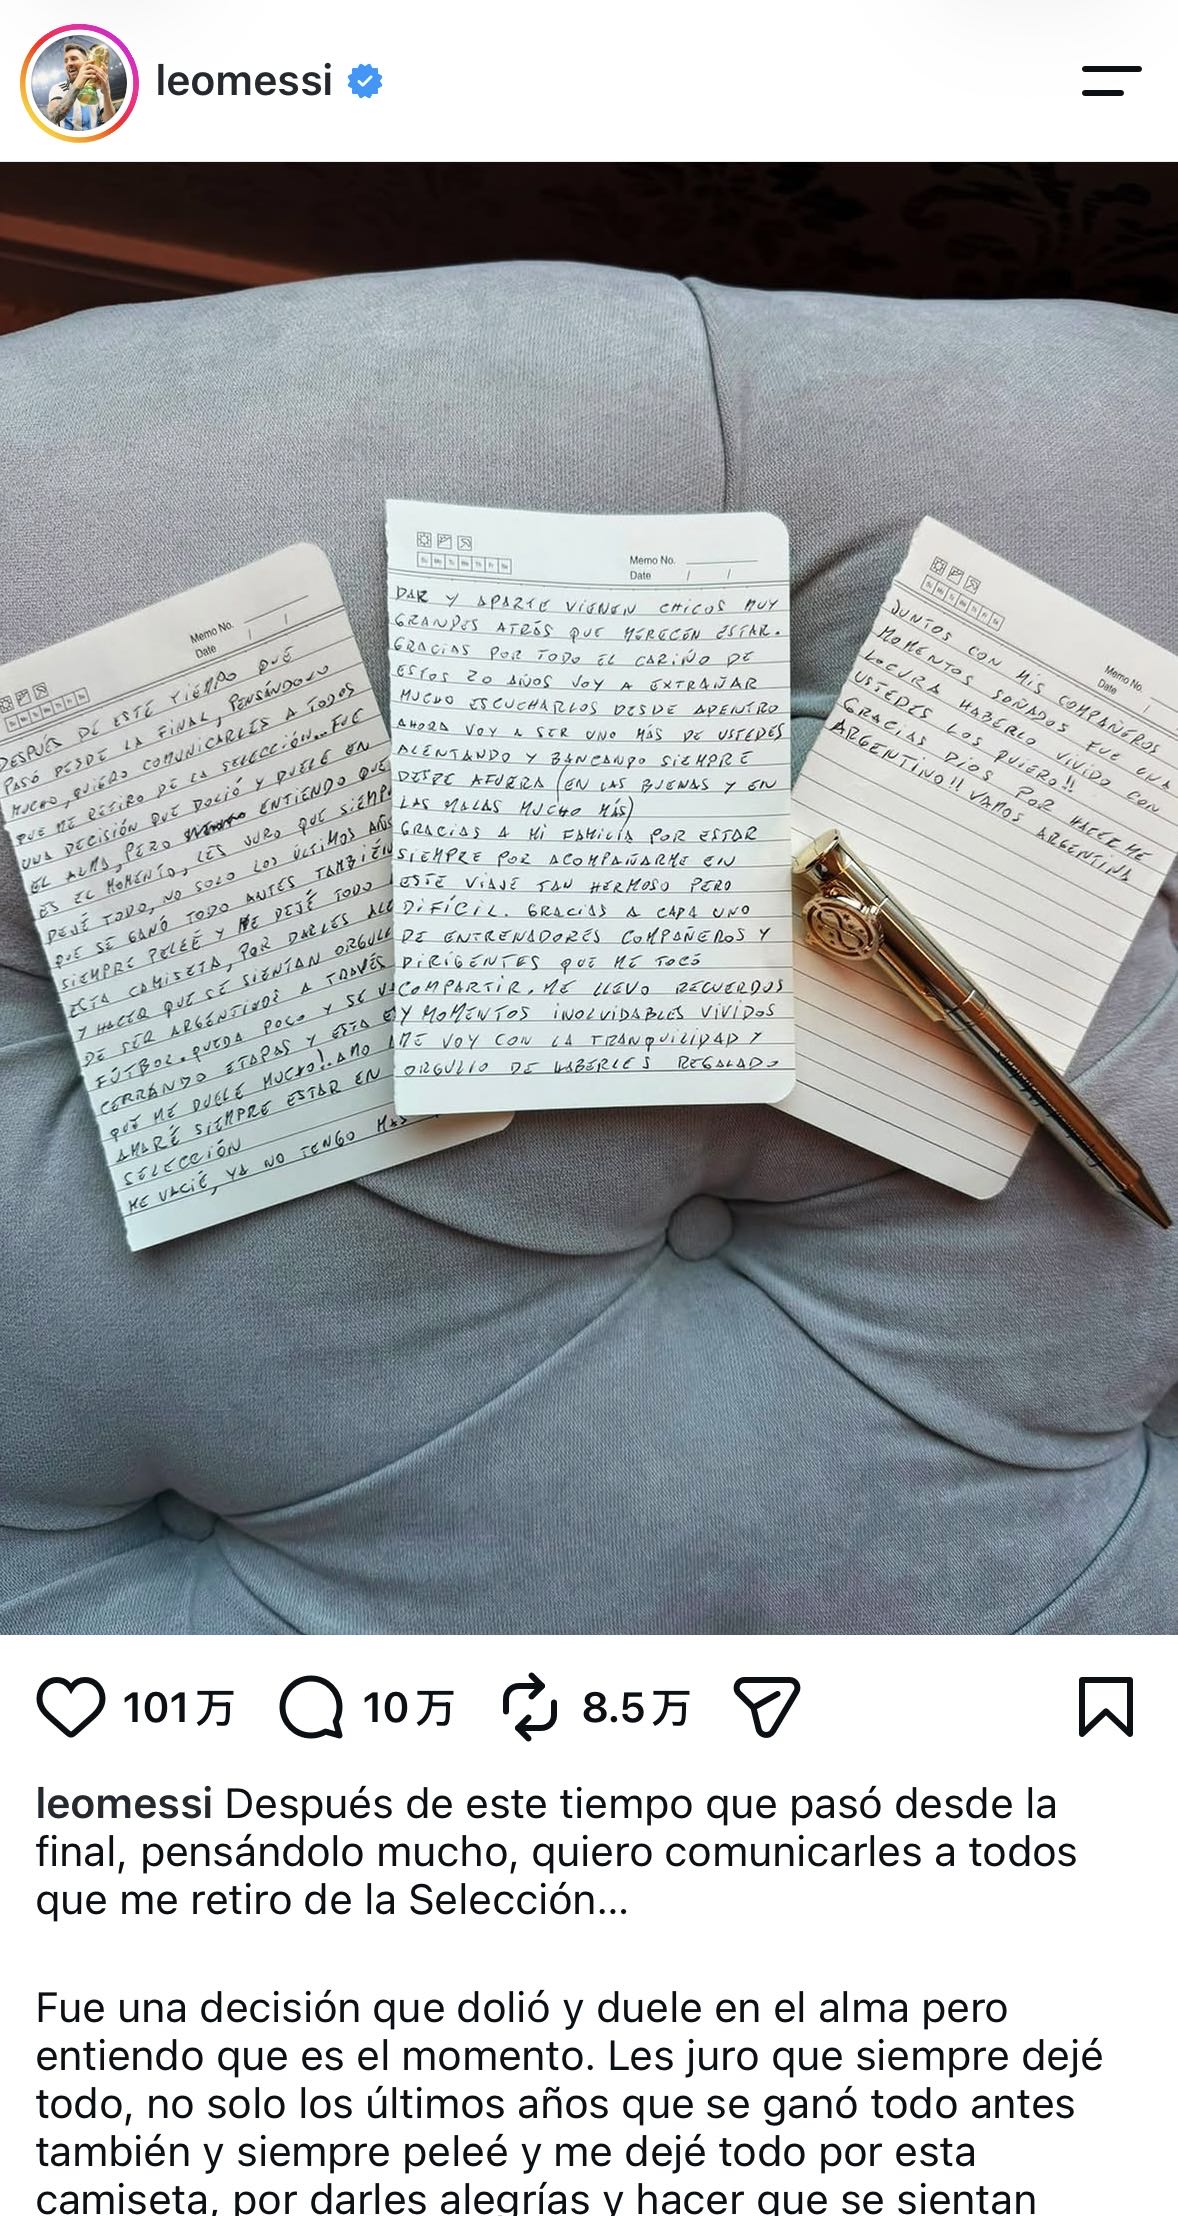 leomessi
Memo No.
Date / /
DESPUÉS DE ESTE TIEMPO QUE
PASÓ DESDE LA FINAL, PENSÁNDOLO
MUCHO, QUIERO COMUNICARLES A TODOS
QUE ME RETIRO DE LA SELECCIÓN... FUE
UNA DECISIÓN QUE DOLIÓ Y DUELE EN
EL ALMA, PERO ENTIENDO QUE
ES EL MOMENTO, LES JURO QUE SIEMP
DEJÉ TODO, NO SOLO LOS ÚLTIMOS AÑOS
QUE SE GANÓ TODO ANTES TAMBIÉN
SIEMPRE PELEÉ Y ME DEJÉ TODO
ESTA CAMISETA, POR DARLES ALE
Y HACER QUE SE SIENTAN ORGULL
DE SER ARGENTINOS A TRAVÉS
FÚTBOL. QUEDA POCO Y SE V
CERRANDO ETAPAS Y ESTA E
QUE ME DUELE MUCHO! AMO
AMARÉ SIEMPRE ESTAR EN
SELECCIÓN
ME VACIÉ, YA NO TENGO MAS
Memo No.
Date / /
DAR Y APARTE VIENEN CHICOS MUY
GRANDES ATRÁS QUE MERECEN ESTAR.
GRACIAS POR TODO EL CARIÑO DE
ESTOS 20 AÑOS VOY A EXTRAÑAR
MUCHO ESCUCHARLOS DESDE ADENTRO
AHORA VOY A SER UNO MÁS DE USTEDES
ALENTANDO Y BANCANDO SIEMPRE
DESDE AFUERA (EN LAS BUENAS Y EN
LAS MALAS MUCHO MÁS)
GRACIAS A MI FAMILIA POR ESTAR
SIEMPRE POR ACOMPAÑARME EN
ESTE VIAJE TAN HERMOSO PERO
DIFÍCIL. GRACIAS A CADA UNO
DE ENTRENADORES COMPAÑEROS Y
DIRIGENTES QUE ME TOCÓ
COMPARTIR. ME LLEVO RECUERDOS
Y MOMENTOS INOLVIDABLES VIVIDOS
ME VOY CON LA TRANQUILIDAD Y
ORGULLO DE HABERLES REGALADO
Memo No.
Date /
JUNTOS CON MIS COMPAÑEROS
MOMENTOS SOÑADOS FUE UNA
LOCURA HABERLO VIVIDO CON
USTEDES LOS QUIERO!!
GRACIAS DIOS POR HACERME
ARGENTINO!! VAMOS ARGENTINA
101万 10万 8.5万
leomessi Después de este tiempo que pasó desde la
final, pensándolo mucho, quiero comunicarles a todos
que me retiro de la Selección...
Fue una decisión que dolió y duele en el alma pero
entiendo que es el momento. Les juro que siempre dejé
todo, no solo los últimos años que se ganó todo antes
también y siempre peleé y me dejé todo por esta
camiseta, por darles alegrías y hacer que se sientan